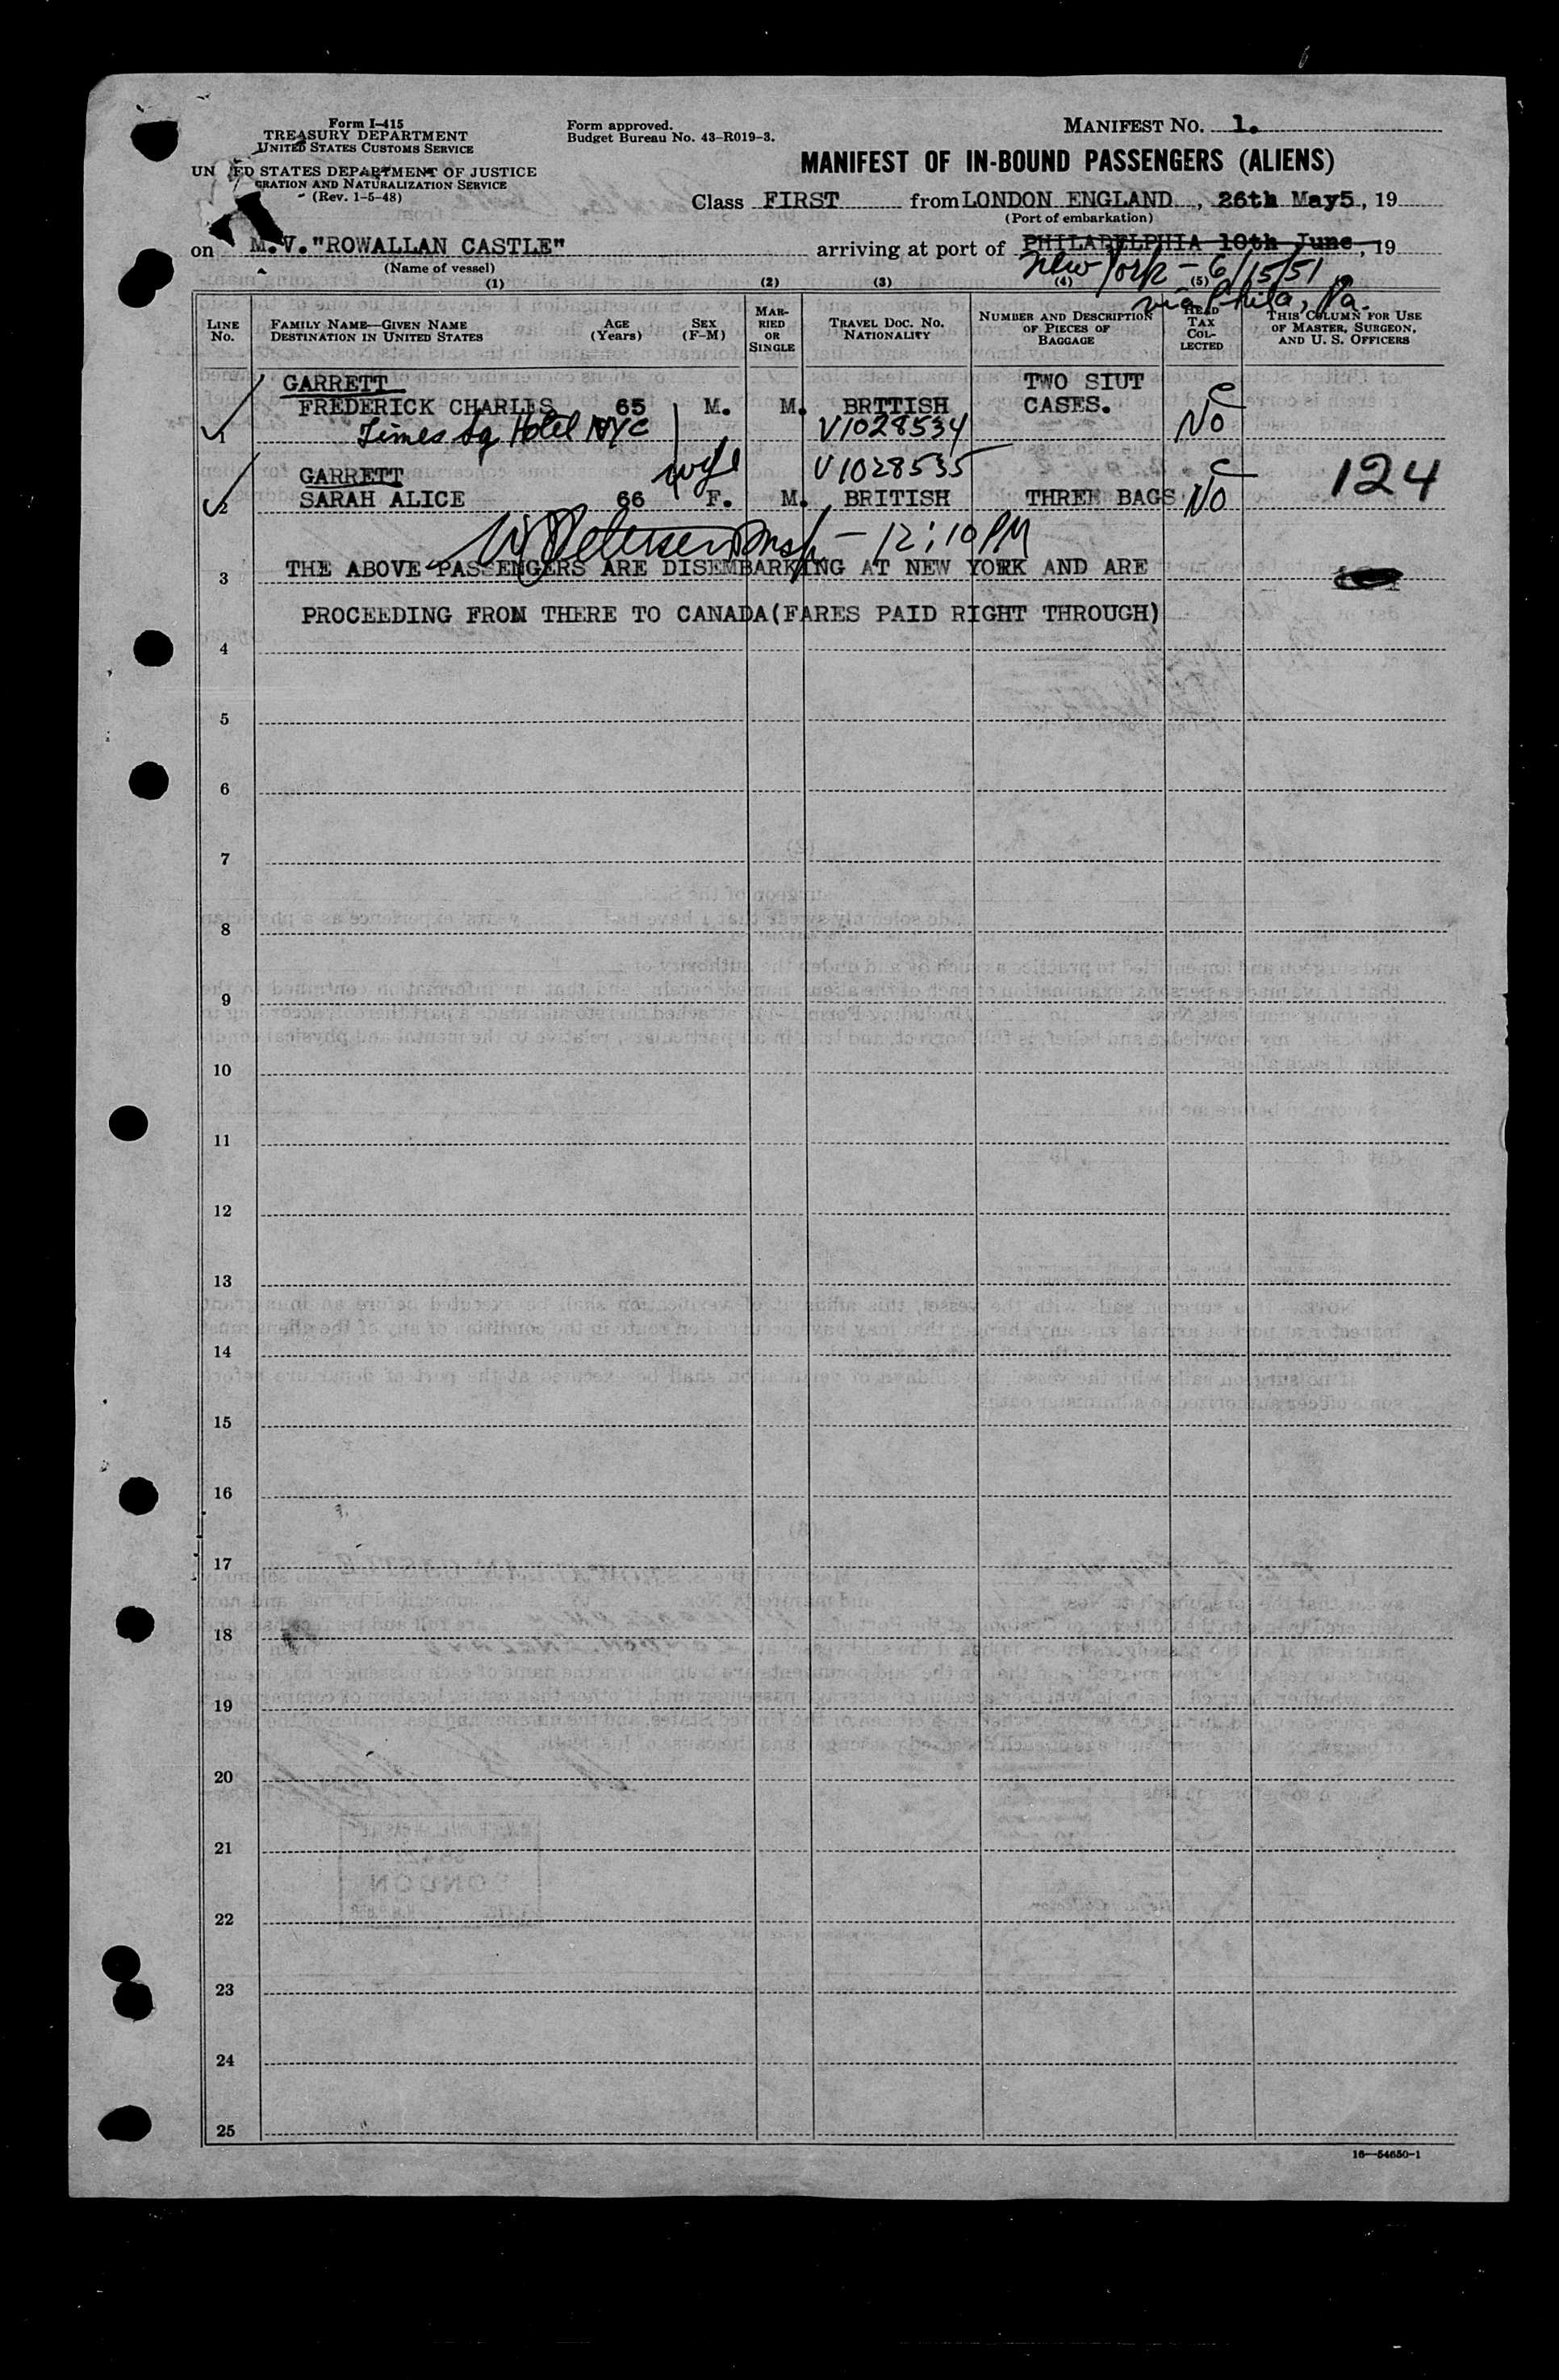 Form I-415
TREASURY DEPARTMENT
UNITED STATES CUSTOMS SERVICE
UN ED STATES DEPARTMENT OF JUSTICE
GRATION AND NATURALIZATION SERVICE
(Rev. 1-5-48)
Form approved.
Budget Bureau No. 43-R019-3.
MANIFEST NO. 1.
MANIFEST OF IN-BOUND PASSENGERS (ALIENS)
Class FIRST from LONDON ENGLAND, 26th May5, 19
(Port of embarkation)
on M.V. "ROWALLAN CASTLE" arriving at port of PHILADELPHIA 10th June, 19
(Name of vessel)
New York - 6/15/51
via Phila, Pa.
(1) (2) (3) (4) (5)
LINE No. FAMILY NAME—GIVEN NAME DESTINATION IN UNITED STATES AGE (Years) SEX (F-M) MARRIED OR SINGLE TRAVEL DOC. NO. NATIONALITY NUMBER AND DESCRIPTION OF PIECES OF BAGGAGE HEAD TAX COLLECTED THIS COLUMN FOR USE OF MASTER, SURGEON, AND U. S. OFFICERS
GARRETT TWO SIUT
FREDERICK CHARLES 65 M. M. BRITISH CASES. C
1 Times Sq Hotel NYC V1028534 No
GARRETT wife V1028535 C 124
2 SARAH ALICE 66 F. M. BRITISH THREE BAGS No
Insp - 12:10 PM
3 THE ABOVE PASSENGERS ARE DISEMBARKING AT NEW YORK AND ARE
PROCEEDING FROM THERE TO CANADA(FARES PAID RIGHT THROUGH)
4
5
6
7
8
9
10
11
12
13
14
15
16
17
18
19
20
21
22
23
24
25
16—54650-1